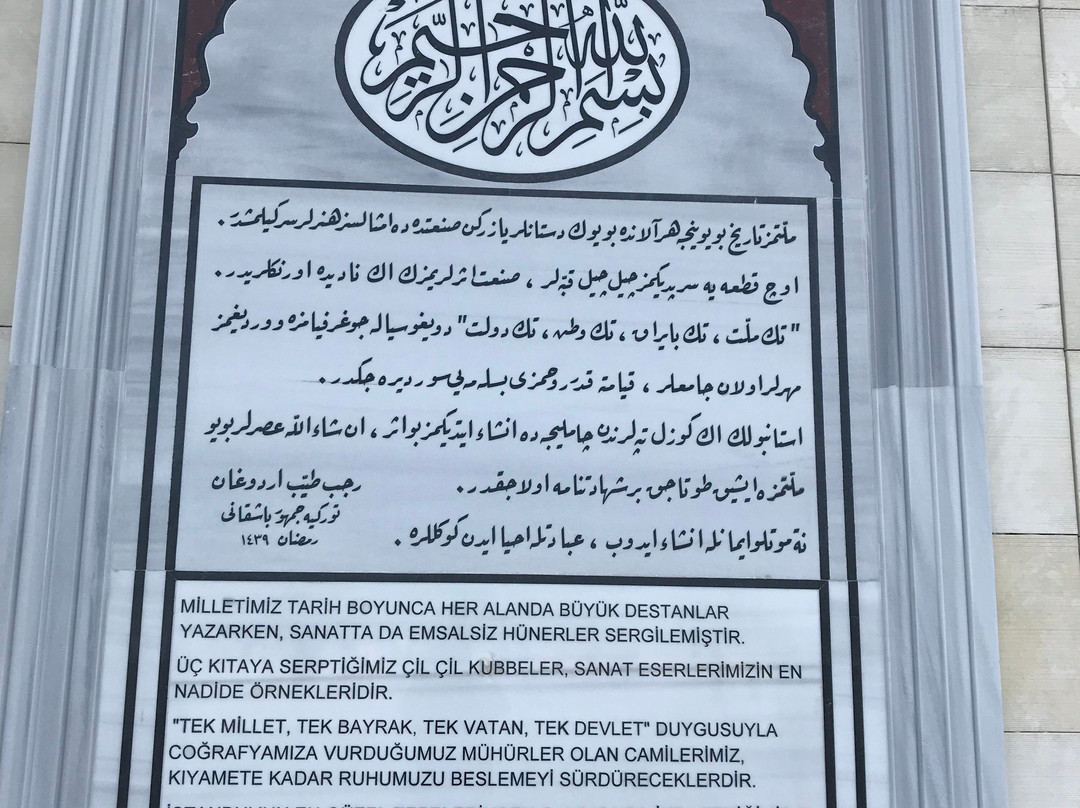 بسم الله الرحمن الرحيم
ملّتمز تاريخ بويونجه هر آلانده بويوك دستانلر يازركن صنعتده ده امثالسز هنرلر سركيلمشدر.
اوچ قطعه يه سرپديكمز چيل چيل قبّه لر ، صنعت اثرلريمزك اك ناديده اورنكلريدر.
"تك ملّت ، تك بايراق ، تك وطن ، تك دولت" دويغوسيله جوغرفيامزه ووردیغمز
مهرلر اولان جامعلر ، قيامة قدر روحمزى بسله مه يى سورديره جكدر.
استانبولك اك كوزل تپه لرندن چامليجه ده انشاء ايتديكمز بو اثر ، ان شاء الله عصرلر بويو
ملّتمزه ايشيق طوتاجق بر شهادتنامه اولاجقدر.
نه موتلو ايمانله انشاء ايدوب ، عبادتله احيا ايدن كوكللره .
رجب طيّب اردوغان
توركيه جمهور باشقانى
رمضان ١٤٣٩
MİLLETİMİZ TARİH BOYUNCA HER ALANDA BÜYÜK DESTANLAR
YAZARKEN, SANATTA DA EMSALSİZ HÜNERLER SERGİLEMİŞTİR.
ÜÇ KITAYA SERPTİĞİMİZ ÇİL ÇİL KUBBELER, SANAT ESERLERİMİZİN EN
NADİDE ÖRNEKLERİDİR.
"TEK MİLLET, TEK BAYRAK, TEK VATAN, TEK DEVLET" DUYGUSUYLA
COĞRAFYAMIZA VURDUĞUMUZ MÜHÜRLER OLAN CAMİLERİMİZ,
KIYAMETE KADAR RUHUMUZU BESLEMEYİ SÜRDÜRECEKLERDİR.